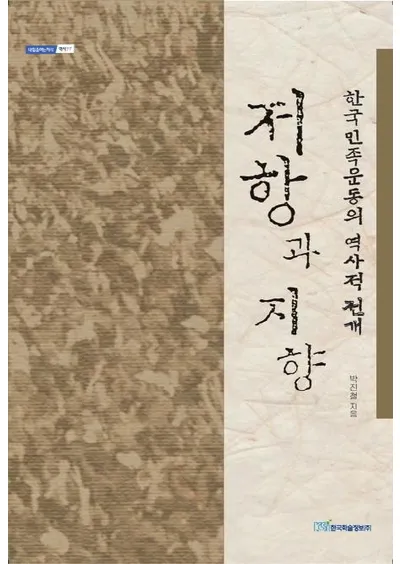 한국민족운동의 역사적 전개
저항과 지향
박진철 지음
한국학술정보(주)